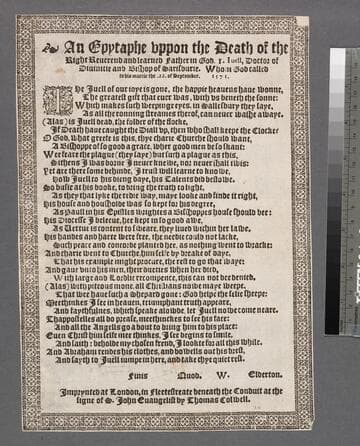 An Epytaphe vppon the Death of the
Right Reuerend and learned Father in God. I. Iuell, Doctor of
Diuinitie and Bishop of Sarisburie. Whom God called
to his mercie the .22. of September. 1571.
THe Iuell of our ioye is gone, the happie heauens haue wonne,
The greatest gift that euer was, with vs beneth the sonne:
Which makes such weeping eyes, in Salisbury they saye,
As all the ronning streames therof, can neuer washe awaye.
(Alas) is Iuell dead, the folder of the flocke,
If Death haue caught the Diall vp, then who shall kepe the Clocke:
O God, what greefe is this, thye charie Churche should want,
A Bishoppe of so good a grace, wher good men be so skant:
We feare the plague (they saye) but sure a plague as this,
Sithens I was borne I neuer knewe, nor neuer shall iwis:
Yet are there some behinde, I trust will learne to knowe,
how Iuell to his dieng daye, his Talents did bestowe.
So busie at his booke, to bring the truth to light,
As they that lyst he tride way, maye looke and finde it right,
his house and housholde was so kept for his degree,
As Paull in his Epistles wrightes a Bishoppes house should bee:
his Diocesse I beleeue, her kept in so good awe,
As Clerkes is content to sweare, they liued within her lawe.
his handes and harte were free, the nedie could not lacke,
Such peace and concorde planted her, as nothing went to wracke:
And tharie went to Churche him selfe by breake of daye,
That his example might procure, the rest to go that waye:
And gaue bothe his men, their dueties When her bid,
With large and Lordlie recompence, this can not be denied,
(Alas) with piteous mone, all Christians nowe maye weepe,
That wee haue such a Shepard gone: God helpe the selie sheepe:
Meethinkes I see in heauen, triumphant trueth appeare,
And faythfulnes, which speake alowde, let Iuell nowe come neare.
Thappostelles all do prease, meethinckes to see his face:
And all the Angells go about to bring him to his place:
Euen Christ him selfe mee thinkes, I see begins to smile,
And saith: beholde my chosen frend, I lookte for all this while.
And Abraham rendes his clothes, and bowells out his brest,
And sayth to Iuell iumpe in here, and take thye quiet rest.
Finis Quod. W. Elderton.
Imprynted at London, in Fleetestreate beneath the Conduit at the
signe of S. John Euangelist by Thomas Colwell.